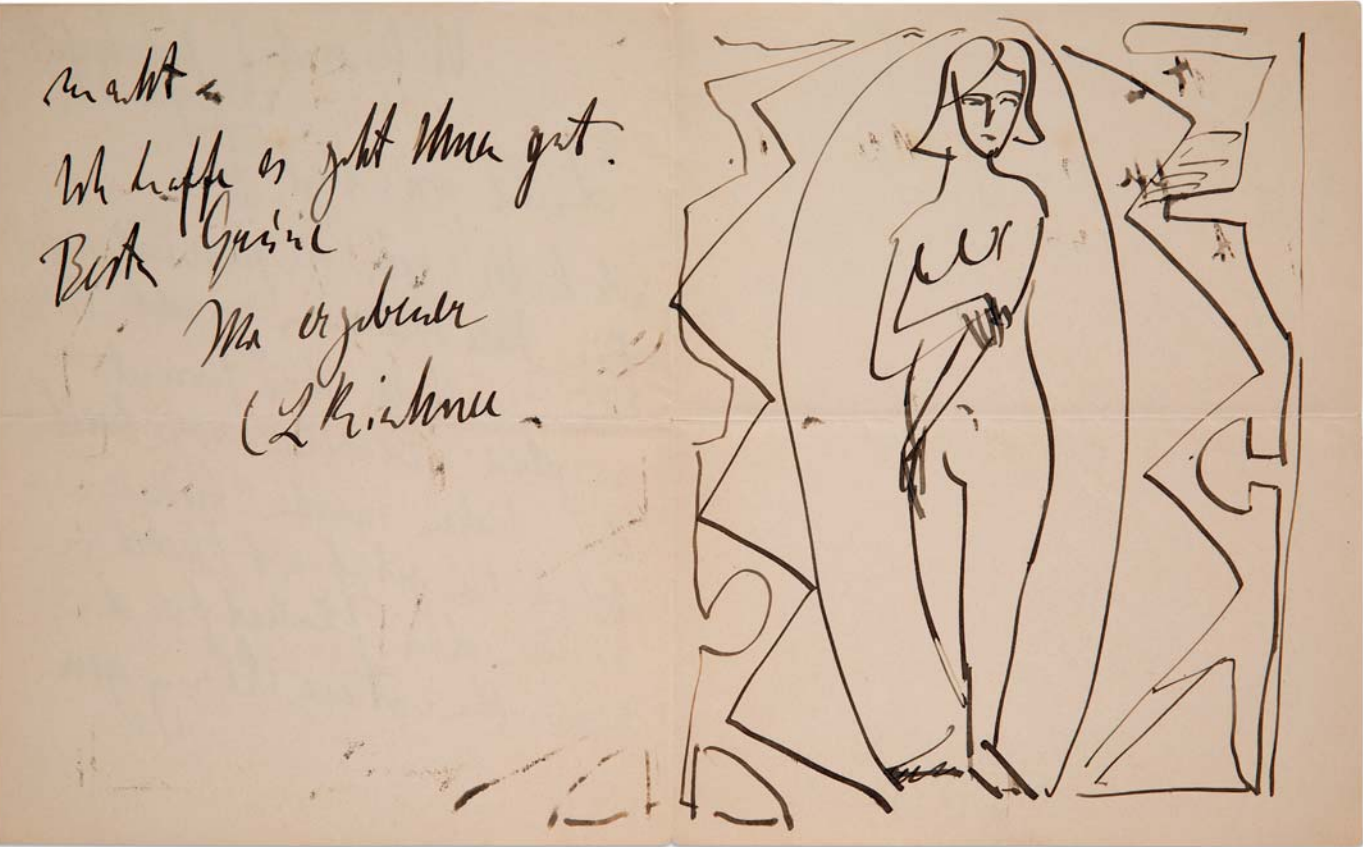 macht –
Ich hoffe es geht Ihnen gut.
Beste Grüsse
Ihr ergebener
E L Kirchner